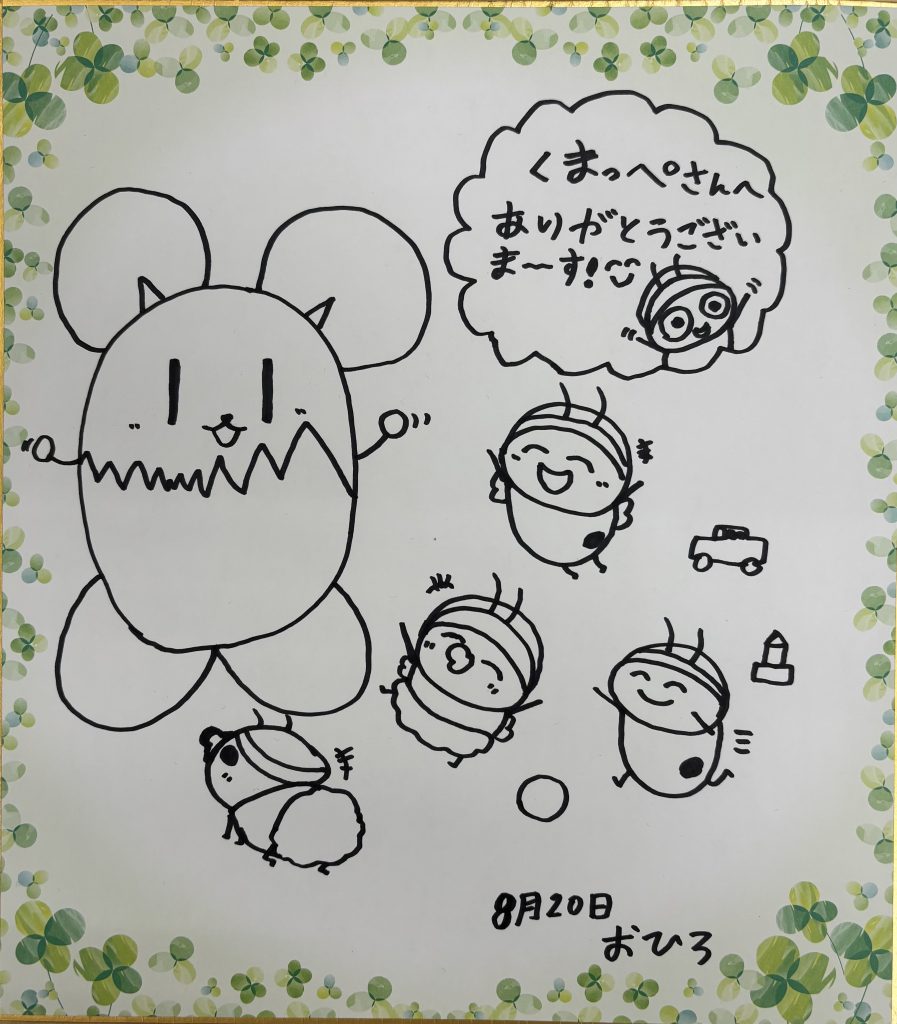 くまっぺさんへ
ありがとうござい
ま〜す!
8月20日
おひろ